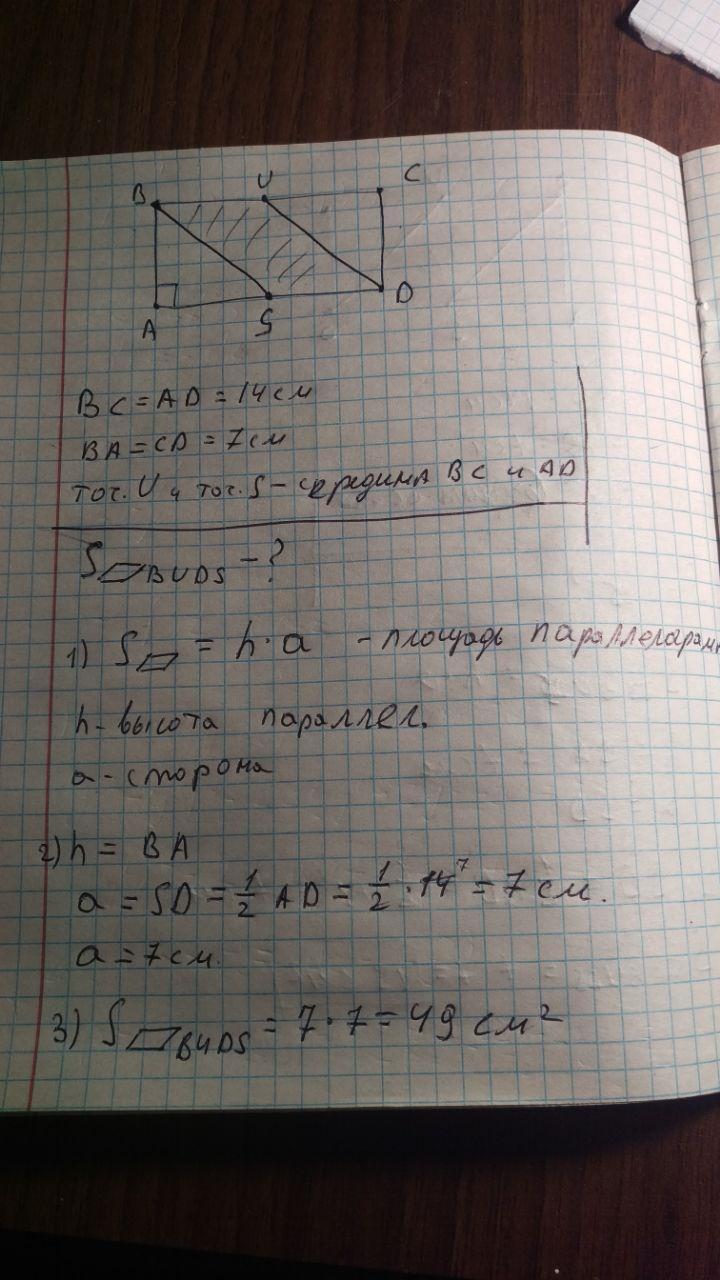 B U C
A S D
BC = AD = 14 см
BA = CD = 7 см
точ. U и точ. S - середина BC и AD
S▱BUDS - ?
1) S▱ = h · a - площадь параллеларам
h - высота параллел.
a - сторона
2) h = BA
a = SD = 1/2 AD = 1/2 · 14 7 = 7 см.
a = 7 см
3) S▱BUDS = 7 · 7 = 49 см²